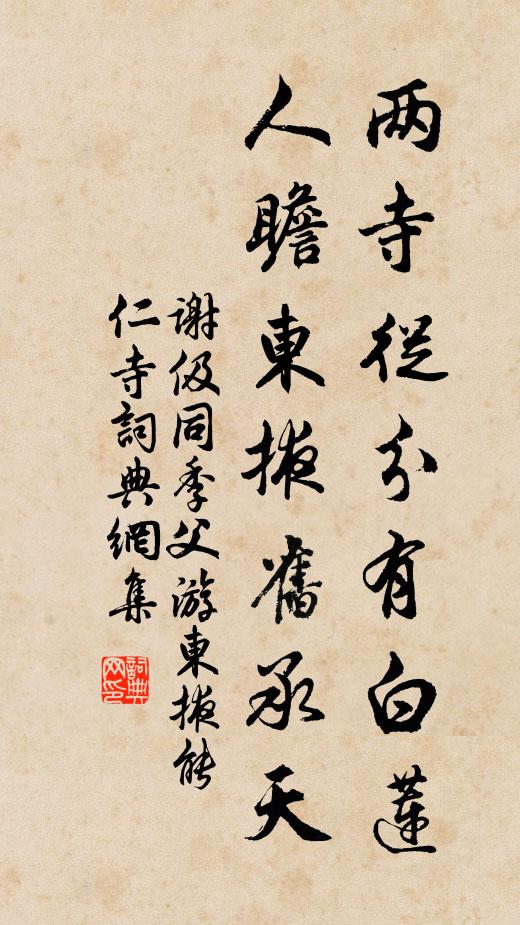 两寺從分有白蓮
人瞻東掖舊承天
谢伋同季父游東掖能
仁寺詞典網集
詞典
网印